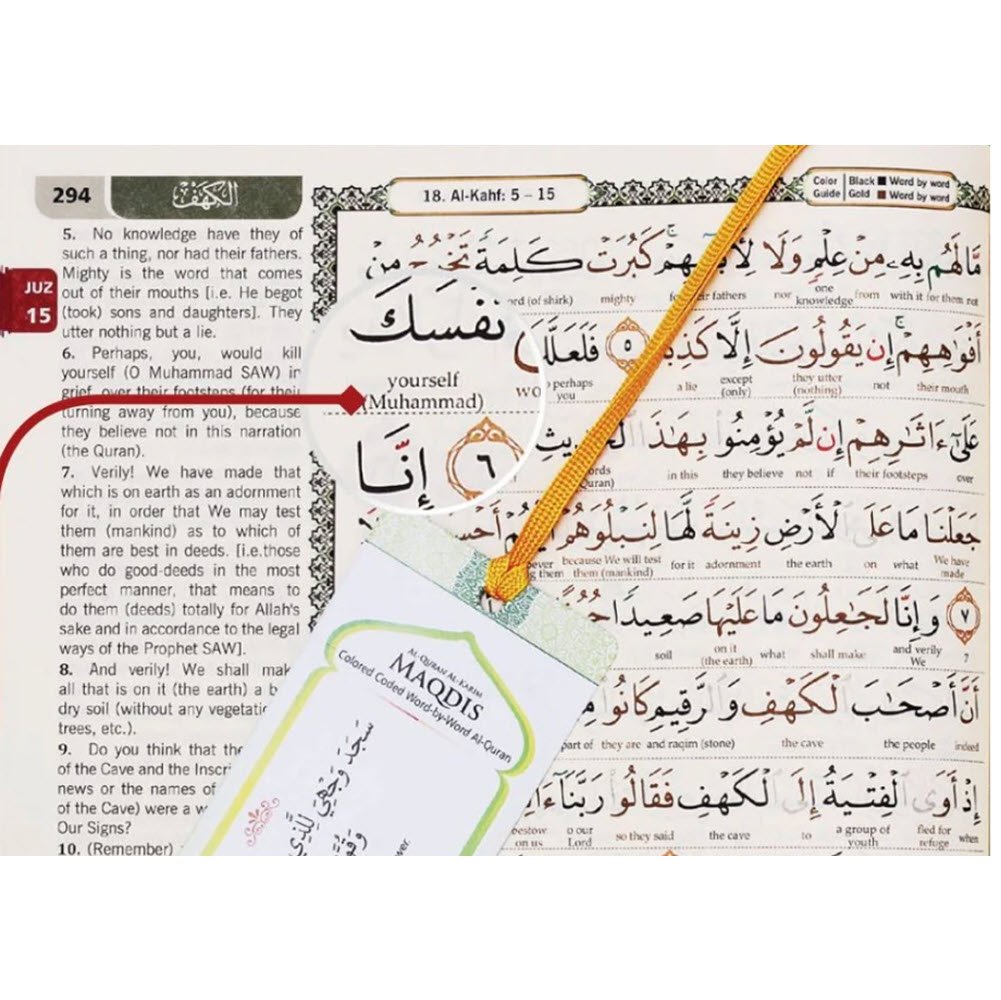 294
الكهف
JUZ
15
5. No knowledge have they of
such a thing, nor had their fathers.
Mighty is the word that comes
out of their mouths [i.e. He begot
(took) sons and daughters]. They
utter nothing but a lie.
6. Perhaps, you, would kill
yourself (O Muhammad SAW) in
grief, over their footsteps (for their
turning away from you), because
they believe not in this narration
(the Quran).
7. Verily! We have made that
which is on earth as an adornment
for it, in order that We may test
them (mankind) as to which of
them are best in deeds. [i.e.those
who do good-deeds in the most
perfect manner, that means to
do them (deeds) totally for Allah's
sake and in accordance to the legal
ways of the Prophet SAW].
8. And verily! We shall mak
all that is on it (the earth) a b
dry soil (without any vegetatio
trees, etc.).
9. Do you think that the
of the Cave and the Inscri
news or the names of
of the Cave) were a w
Our Signs?
10. (Remember)
18. Al-Kahf: 5 – 15
Color Guide
Black Word by word
Gold Word by word
مَّا لَهُم بِهِۦ مِنْ عِلْمٍ وَلَا لِأٓبَآئِهِمْ ۚ كَبُرَتْ كَلِمَةً تَخْرُجُ مِنْ
for them not with it from one knowledge nor for their fathers mighty ord (of shirk)
أَفْوَٰهِهِمْ ۚ إِن يَقُولُونَ إِلَّا كَذِبًا ٥ فَلَعَلَّكَ
their mouth not they utter (nothing) except (only) a lie perhaps you
نَفْسَكَ
yourself
(Muhammad)
٦ إِنَّا
عَلَىٰٓ ءَاثَٰرِهِمْ إِن لَّمْ يُؤْمِنُوا۟ بِهَٰذَا ٱلْحَدِيثِ
over their footsteps if not they believe in this ords Quran)
جَعَلْنَا مَا عَلَى ٱلْأَرْضِ زِينَةً لَّهَا لِنَبْلُوَهُمْ أَيُّهُمْ أَحْسَ
We have made what on the earth adornment for it because We will test them (mankind)
٧ وَإِنَّا لَجَٰعِلُونَ مَا عَلَيْهَا صَعِيدًا جُرُزًا
7 and verily We shall make what on it (the earth) soil
أَنَّ أَصْحَٰبَ ٱلْكَهْفِ وَٱلرَّقِيمِ كَانُوا۟
indeed the people the cave and raqim (stone) they are part of
إِذْ أَوَى ٱلْفِتْيَةُ إِلَى ٱلْكَهْفِ فَقَالُوا۟ رَبَّنَآ
when fled for refuge a group of youth to the cave so they said o our Lord bestow on us
AL-QURAN AL-KARIM
MAQDIS
Colored Coded Word-by-Word Al-Quran
سَجَدَ وَجْهِيَ لِلَّذِي